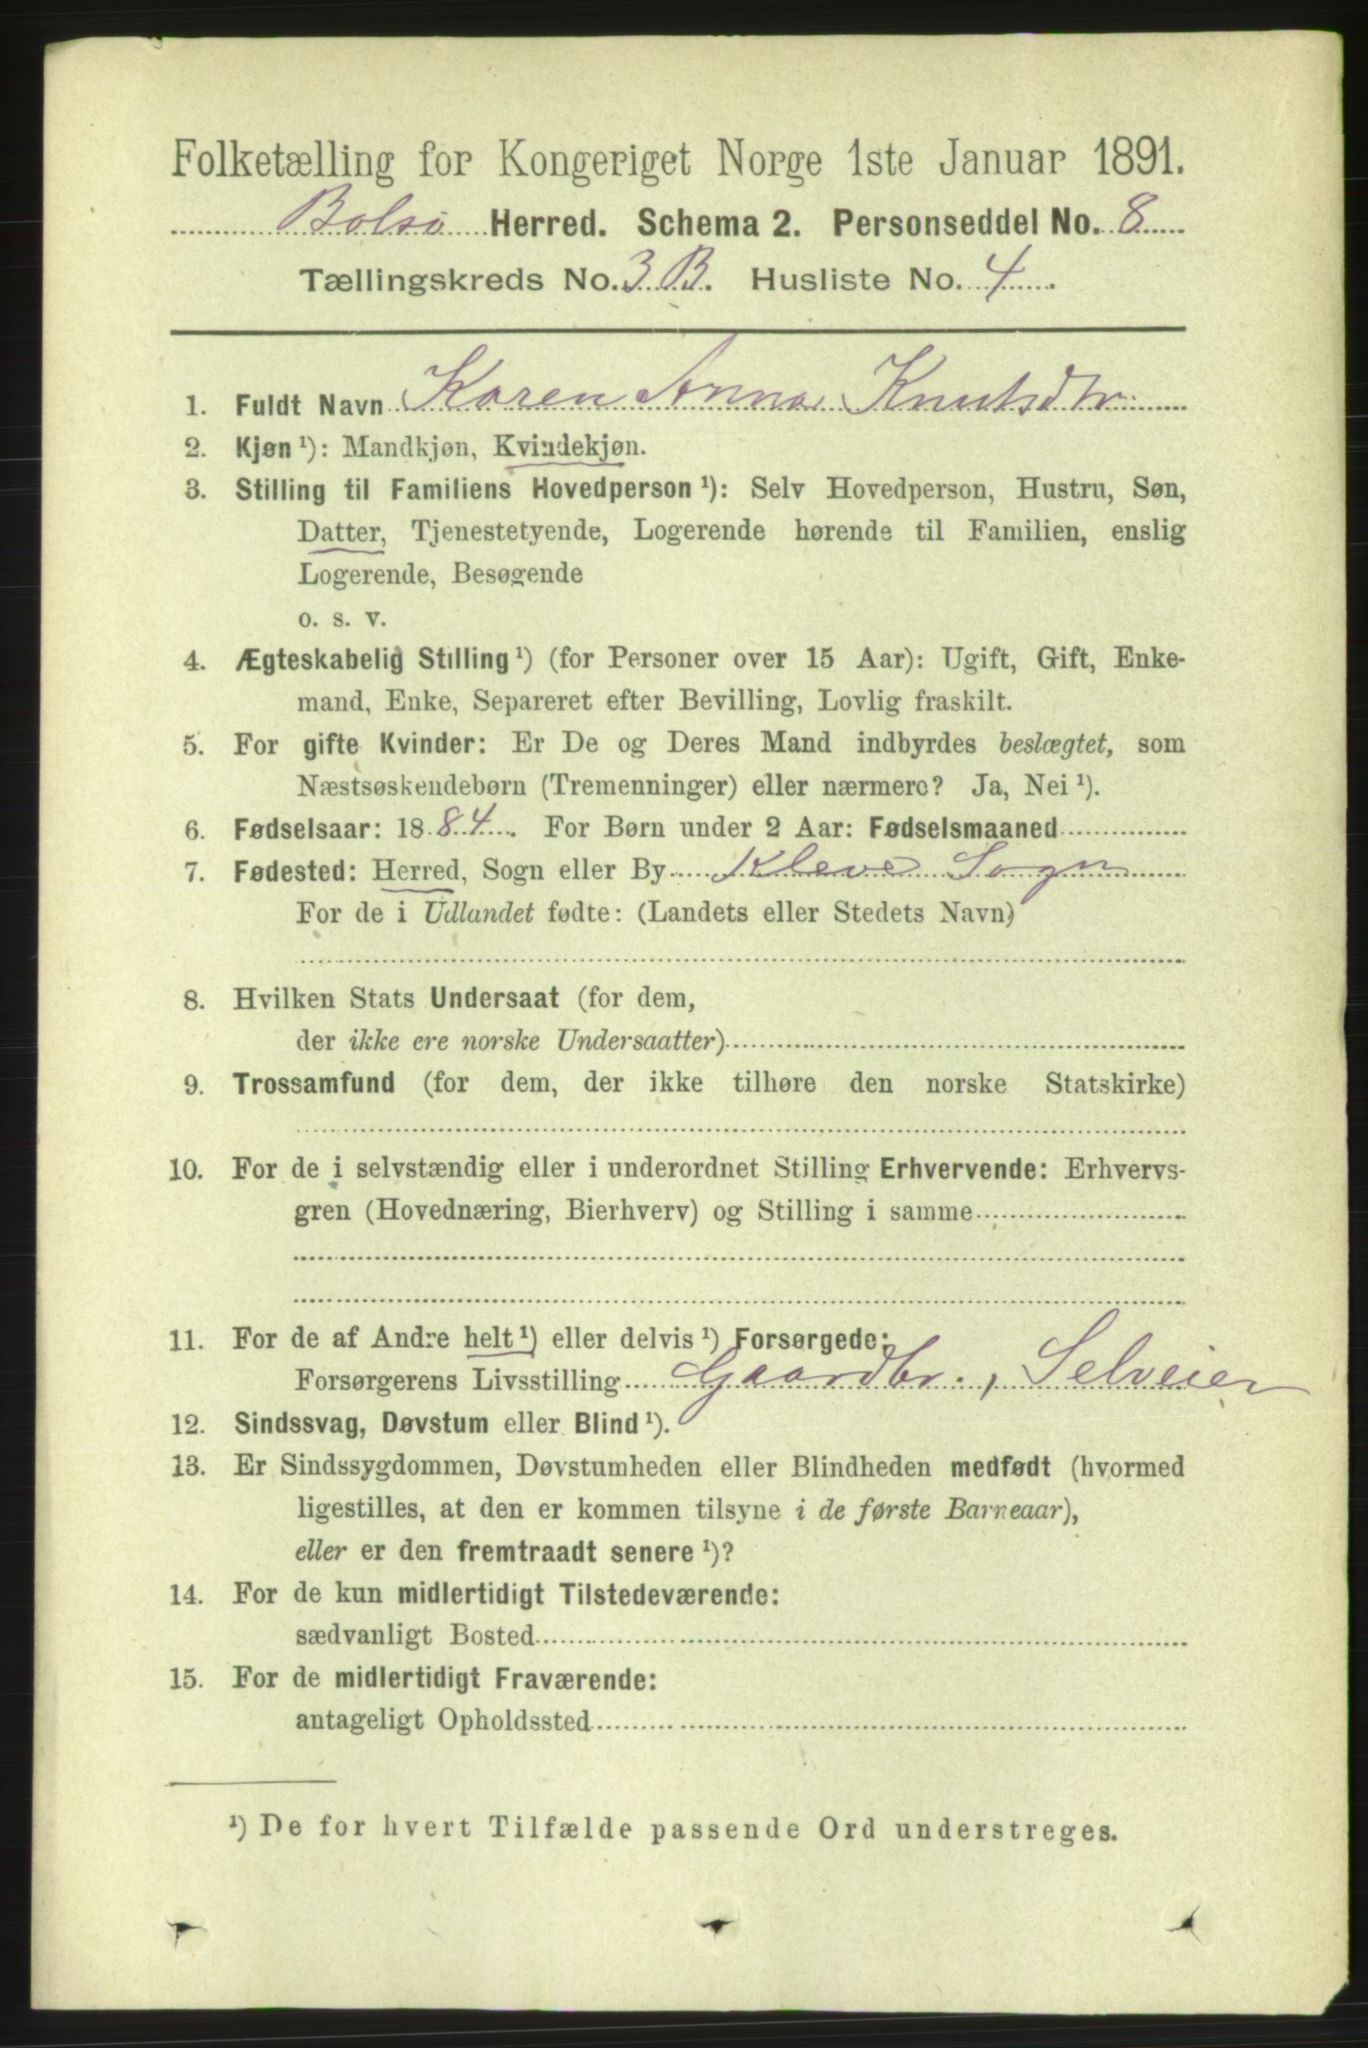 Folketælling for Kongeriget Norge 1ste Januar 1891.
Bolsø Herred. Schema 2. Personseddel No. 8
Tællingskreds No. 3 B. Husliste No. 4.
1. Fuldt Navn Karen Anna Knutsdtr.
2. Kjøn ¹): Mandkjøn, Kvindekjøn.
3. Stilling til Familiens Hovedperson ¹): Selv Hovedperson, Hustru, Søn,
Datter, Tjenestetyende, Logerende hørende til Familien, enslig
Logerende, Besøgende
o. s. v.
4. Ægteskabelig Stilling ¹) (for Personer over 15 Aar): Ugift, Gift, Enke-
mand, Enke, Separeret efter Bevilling, Lovlig fraskilt.
5. For gifte Kvinder: Er De og Deres Mand indbyrdes beslægtet, som
Næstsøskendebørn (Tremenninger) eller nærmere? Ja, Nei ¹).
6. Fødselsaar: 1884. For Børn under 2 Aar: Fødselsmaaned
7. Fødested: Herred, Sogn eller By Kleve Sogn
For de i Udlandet fødte: (Landets eller Stedets Navn)
8. Hvilken Stats Undersaat (for dem,
der ikke ere norske Undersaatter)
9. Trossamfund (for dem, der ikke tilhøre den norske Statskirke)
10. For de i selvstændig eller i underordnet Stilling Erhvervende: Erhvervs-
gren (Hovednæring, Bierhverv) og Stilling i samme
11. For de af Andre helt ¹) eller delvis ¹) Forsørgede:
Forsørgerens Livsstilling Gaardbr., Selveier
12. Sindssvag, Døvstum eller Blind ¹).
13. Er Sindssygdommen, Døvstumheden eller Blindheden medfødt (hvormed
ligestilles, at den er kommen tilsyne i de første Barneaar),
eller er den fremtraadt senere ¹)?
14. For de kun midlertidigt Tilstedeværende:
sædvanligt Bosted
15. For de midlertidigt Fraværende:
antageligt Opholdssted
¹) De for hvert Tilfælde passende Ord understreges.